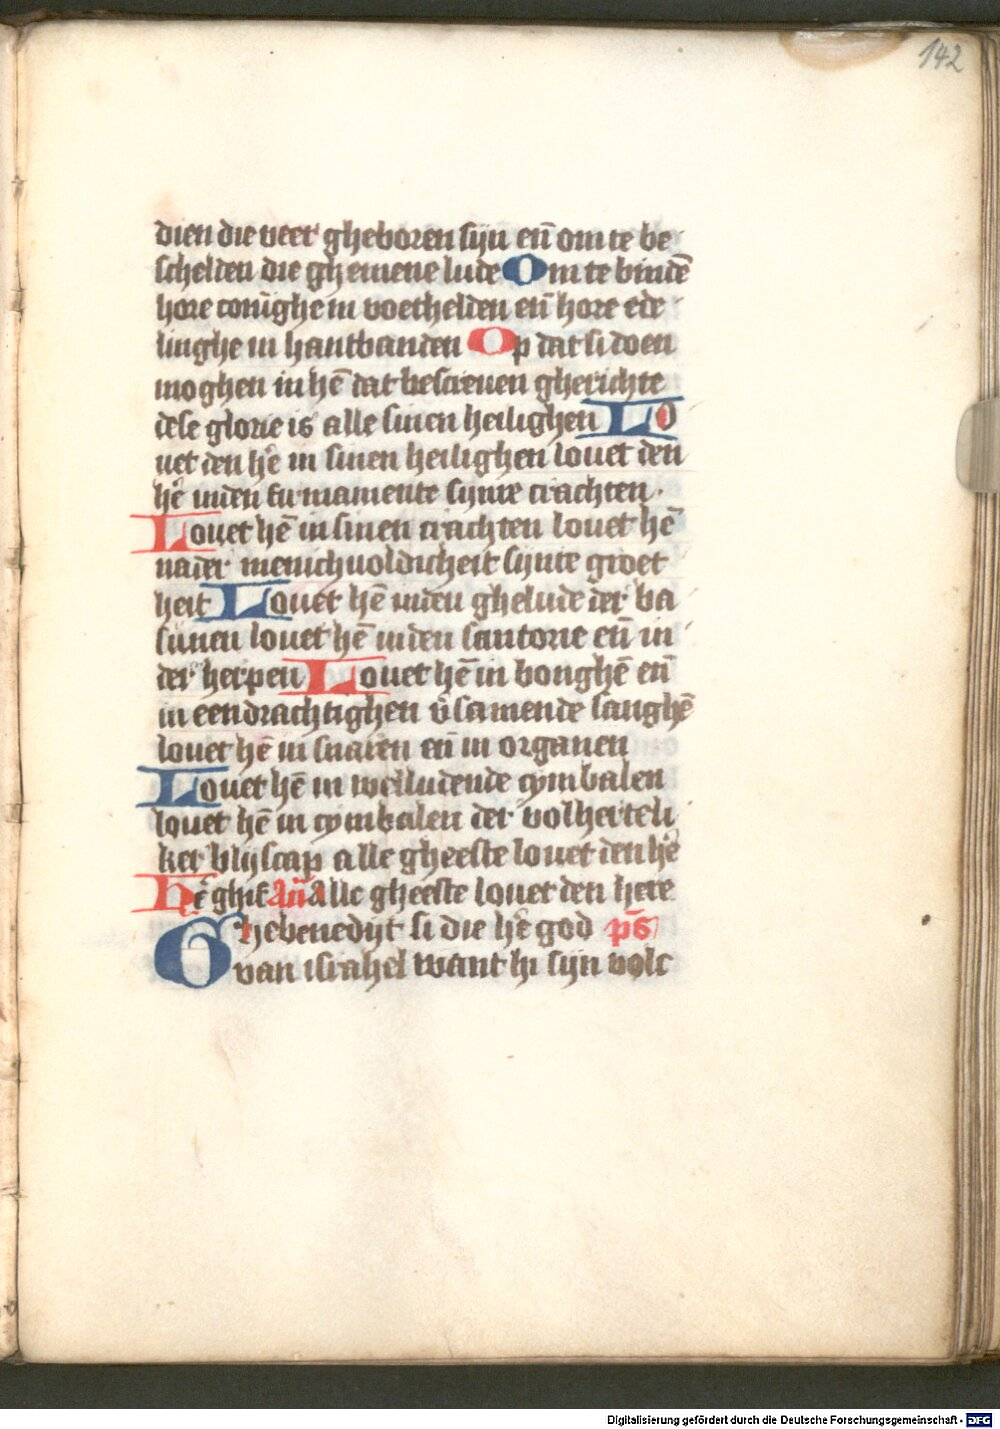 142
dien die veer gheboren sijn en̄ om te be
schelden die ghemene lude Om te bindē
hore conīghe in voethelden en̄ hore ede
linghe in hantbanden Op dat si doen
moghen in hē dat bescreuen gherichte
dese glorie is alle sinen heilighen Lo
uet den hē in sinen heilighen louet den
hē inden firmamente sijnre crachten.
Louet hē in sinen crachten louet hē
nader menichuoldicheit sijnre groet
heit Louet hē inden ghelude der ba
sunen louet hē inden sautorie en̄ in
der herpen Louet hē in bonghē en̄
in eendrachtighen v̄samende sanghē
louet hē in snaren en̄ in organen
Louet hē in welludende cymbalen
louet hē in cymbalen der volherteli
ker blijscap alle gheeste louet den hē
hē ghif An̄ Alle gheeste louet den here
Ghebenedijt si die hē god ps̄
van israhel want hi sijn volc
Digitalisierung gefördert durch die Deutsche Forschungsgemeinschaft - DFG